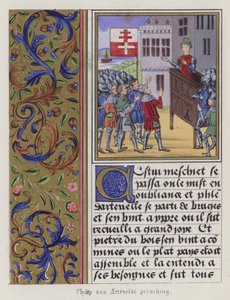 Cestui meschief se
passa on le mist en
oubliance et phle
dartevelle se parti de bruges
et sen vint a yppre ou il fut
recueilli a grand joye. Et
pietre du bois sen vint a co
mines ou le plat pays estait
assemble et la entendi a
ses besoignes et fut tous
van Artevelde preeching.